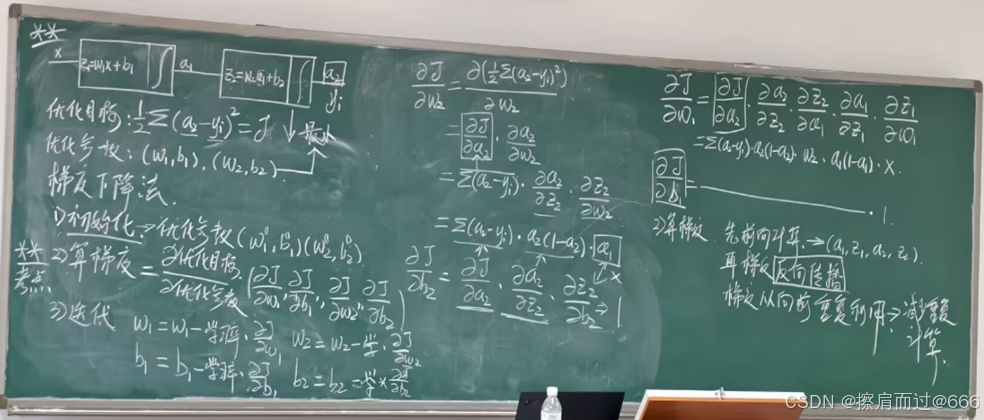 **
x z₁=w₁x+b₁ ∫ a₁ z₂=w₂a₁+b₂ ∫ a₂
yᵢ
优化目标:½Σ(a₂-yᵢ)²=J ↓最小
优化参数:(w₁,b₁),(w₂,b₂)
梯度下降法.
1)初始化→优化参数(w₁⁰,b₁⁰)(w₂⁰,b₂⁰)
** 2)算梯度=∂优化目标/∂优化参数 (∂J/∂w₁,∂J/∂b₁,∂J/∂w₂,∂J/∂b₂)
考点
3)迭代 w₁=w₁-学习率·∂J/∂w₁ w₂=w₂-学·∂J/∂w₂
b₁=b₁-学习率·∂J/∂b₁ b₂=b₂-学×∂J/∂b₂
∂J/∂w₂=∂(½Σ(a₂-yᵢ)²)/∂w₂
=∂J/∂a₂·∂a₂/∂w₂
=Σ(a₂-yᵢ)·∂a₂/∂z₂·∂z₂/∂w₂
=Σ(a₂-yᵢ)·a₂(1-a₂)·a₁
x
∂J/∂b₂=∂J/∂a₂·∂a₂/∂z₂·∂z₂/∂b₂→1
∂J/∂w₁=∂J/∂a₂·∂a₂/∂z₂·∂z₂/∂a₁·∂a₁/∂z₁·∂z₁/∂w₁
=Σ(a₂-yᵢ)·a₂(1-a₂)·w₂·a₁(1-a₁)·x.
∂J/∂b₁= ·1.
2)算梯度 先前向计算→(a₁,z₁,a₂,z₂).
再梯度反向传播
梯度从向前重复利用→减少重复
计算.
CSDN @擦肩而过@666